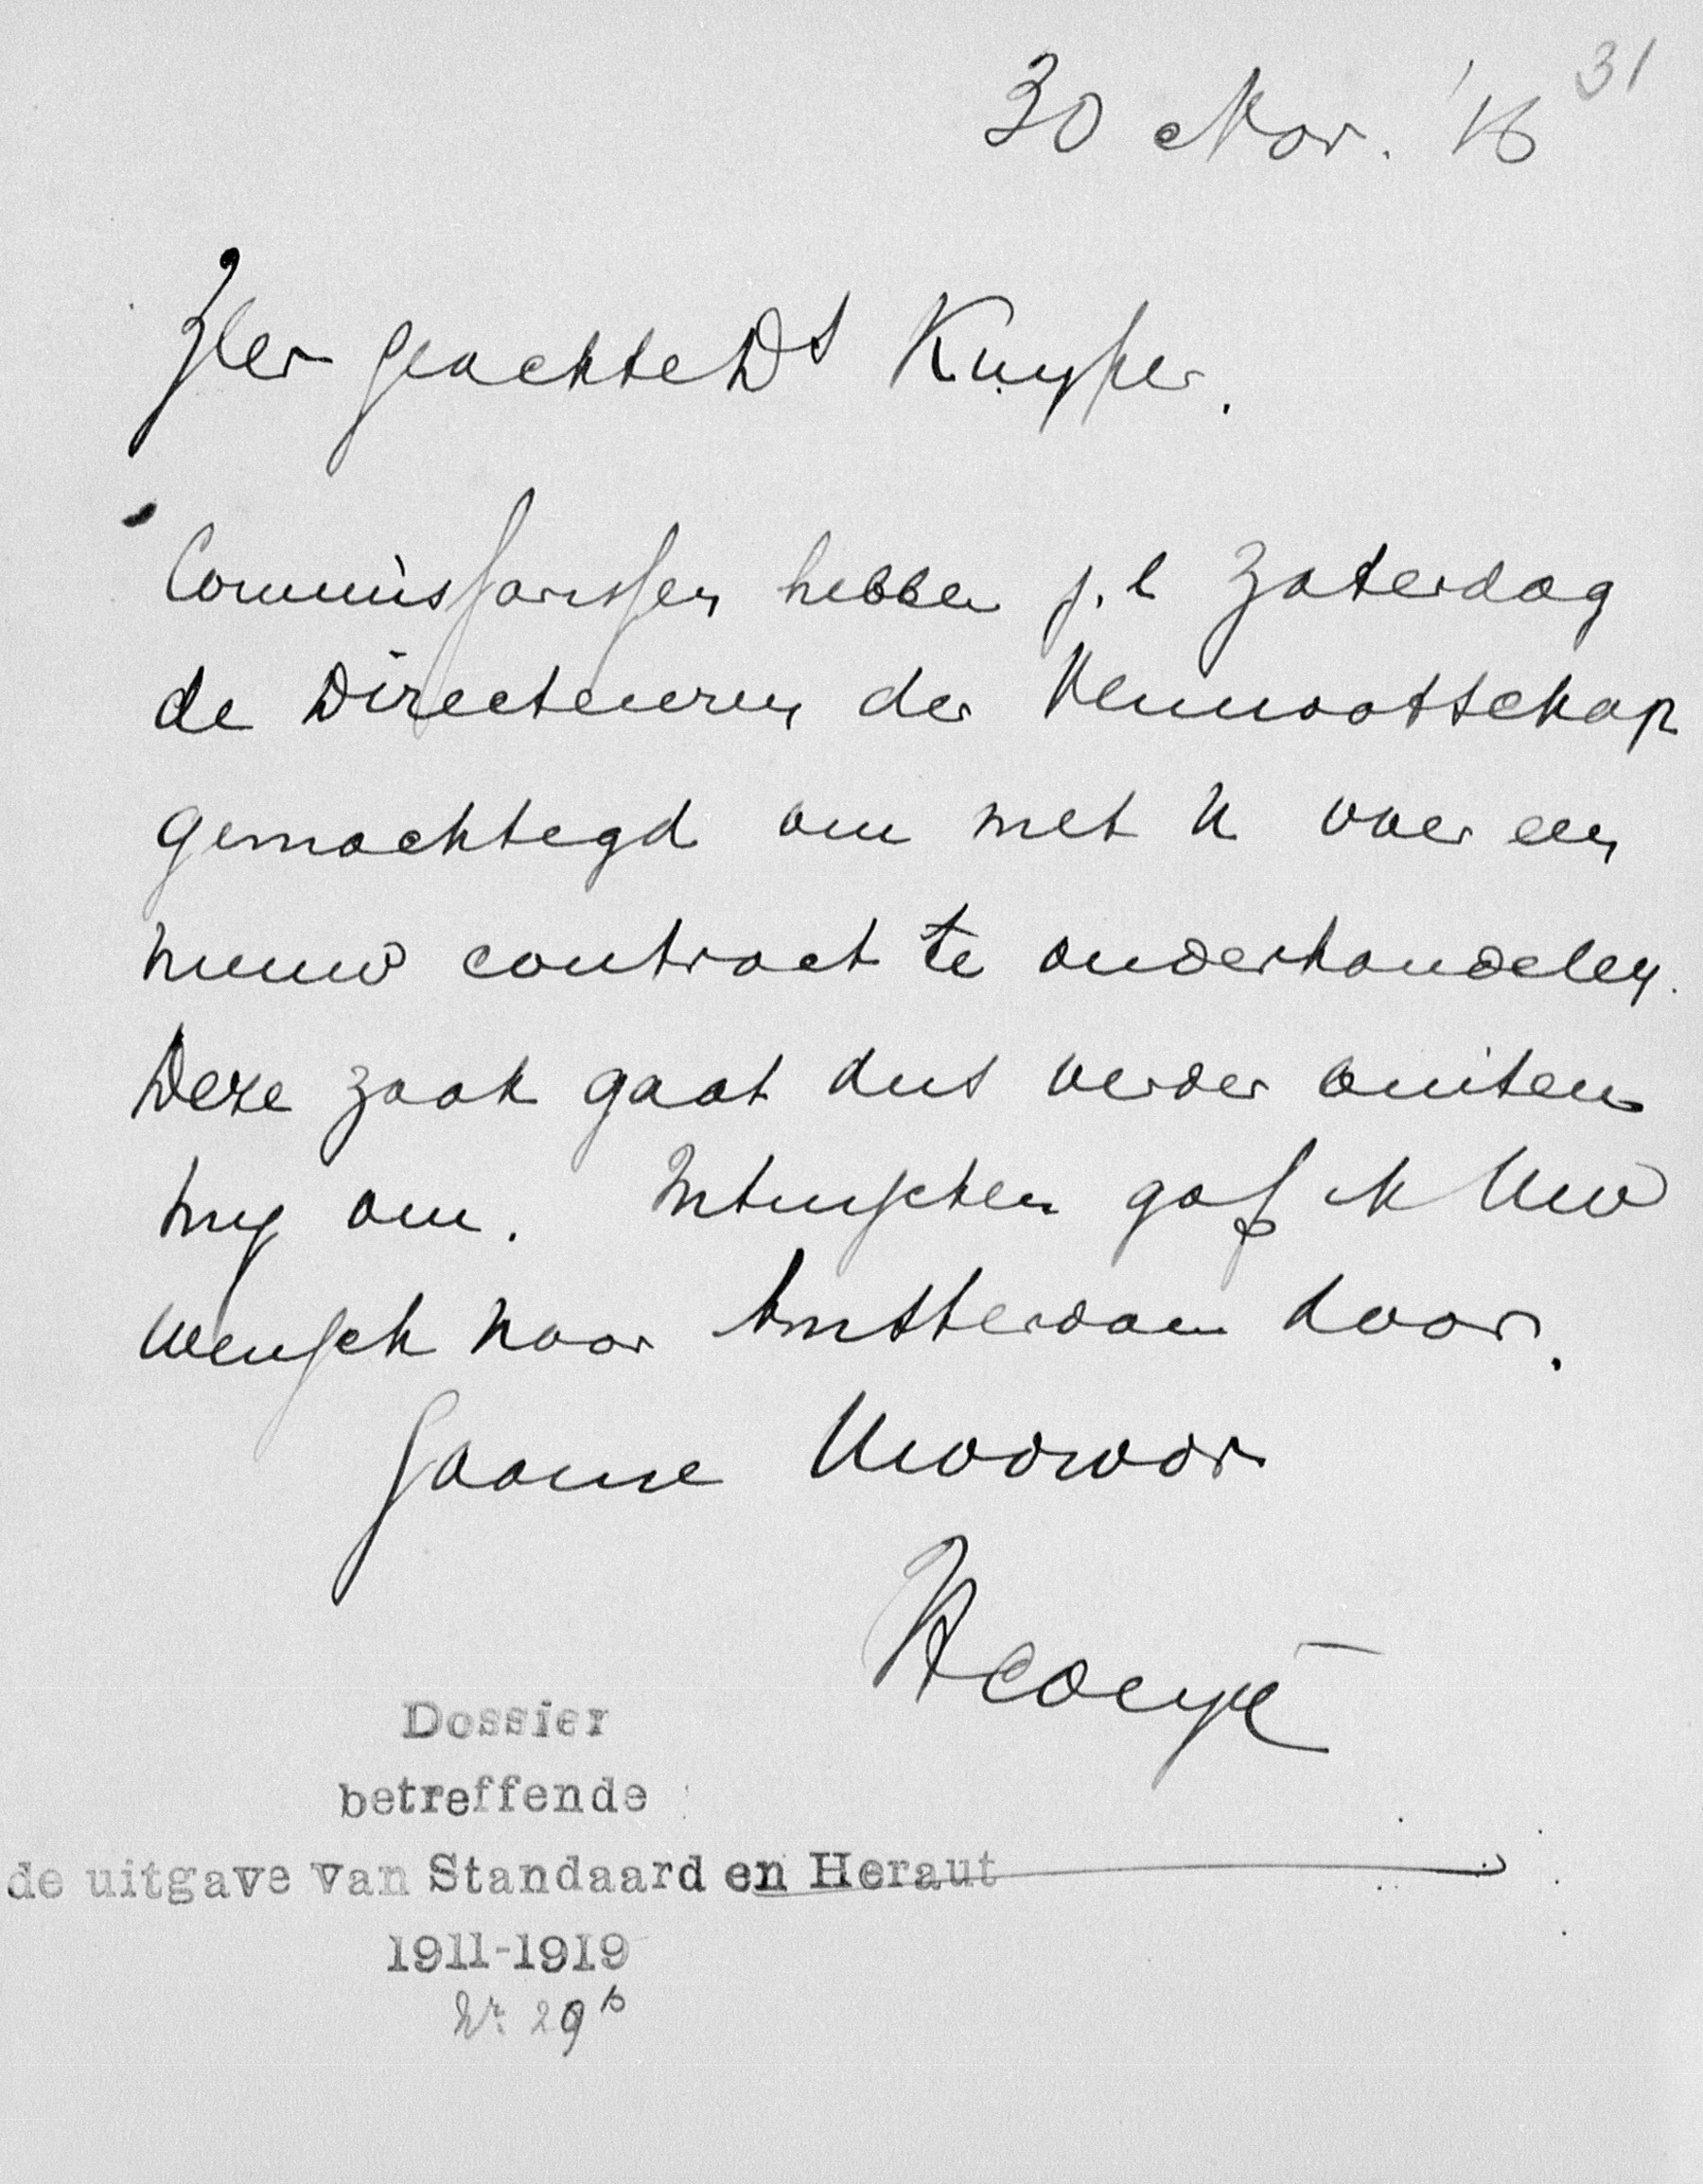 31
30 Nov. '16
Zeer geachte Ds Kuyper.
Commissarissen hebben j.l. Zaterdag
de Directeuren der Vennootschap
gemachtigd om met U over een
nieuw contract te onderhandelen.
Deze zaak gaat dus verder buiten
mij om. Intusschen gaf ik Uw
wensch naar Amsterdam door.
Gaarne Uwdwdr
Dossier
betreffende
de uitgave van Standaard en Heraut
1911-1919
Nr. 29b